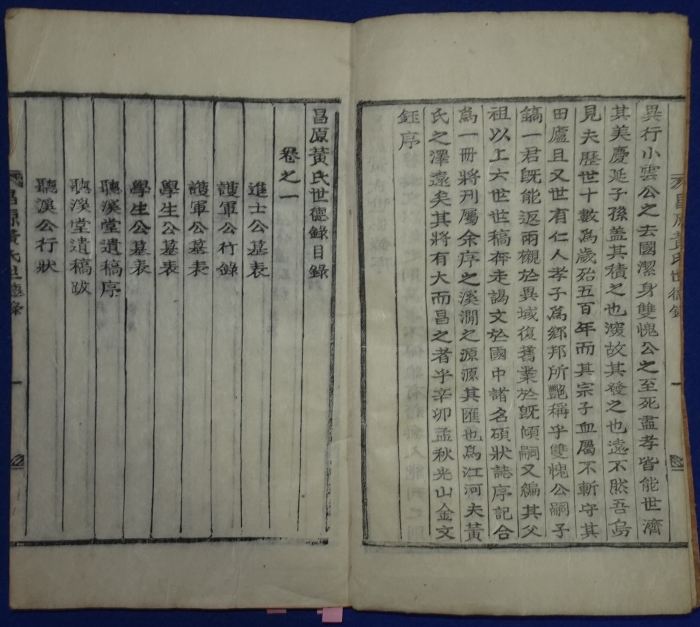 異行小雲公之去國潔身雙愧公之至死盡孝皆能世濟
其美慶延子孫盖其積之也深故其發之也遠不然吾烏
見夫歷世十數為歲殆五百年而其宗子血屬不斬守其
田廬且又世有仁人孝子為鄉邦所艷稱乎雙愧公嗣子
鎬一君旣能返兩櫬於異域復舊業於旣傾嗣又編其父
祖以上六世世稿奔走謁文於國中諸名碩狀誌序記合
為一冊將刊屬余序之溪澗之源源其匯也為江河夫黃
氏之澤遠矣其將有大而昌之者乎辛卯孟秋光山金文
鈺序
昌原黃氏世德錄
一
昌原黃氏世德錄目錄
卷之一
進士公墓表
護軍公行錄
護軍公墓表
學生公墓表
學生公墓表
聽溪堂遺稿序
聽溪堂遺稿跋
聽溪公行狀
昌原黃氏世德錄
一